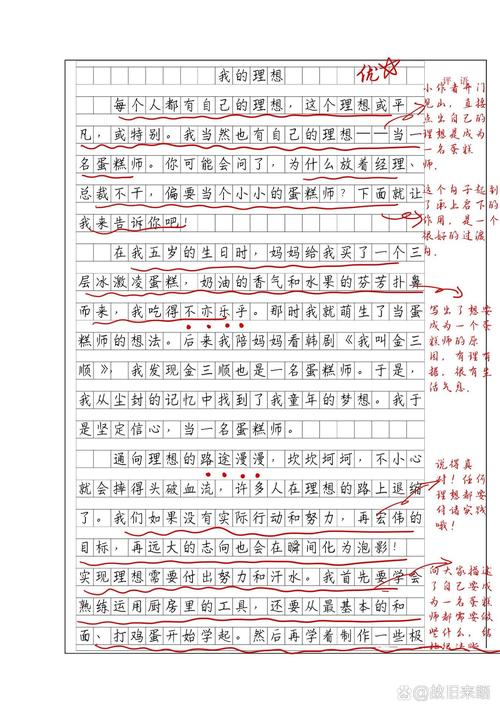 我的理想
优
评语
每个人都有自己的理想，这个理想或平
凡，或特别。我当然也有自己的理想——当一
名蛋糕师。你可能会问了，为什么放着经理、
总裁不干，偏要当个小小的蛋糕师？下面就让
我来告诉你吧！
在我五岁的生日时，妈妈给我买了一个三
层冰激凌蛋糕，奶油的香气和水果的芬芳扑鼻
而来，我吃得不亦乐乎。那时我就萌生了当蛋
糕师的想法。后来我陪妈妈看韩剧《我叫金三
顺》，我发现金三顺也是一名蛋糕师。于是，
我从尘封的记忆中找到了我童年的梦想。我于
是坚定信心，当一名蛋糕师。
通向理想的路途漫漫，坎坎坷坷，不小心
就会摔得头破血流，许多人在理想的路上退缩
了。我们如果没有实际行动和努力，再宏伟的
目标，再远大的志向也会在瞬间化为泡影！
实现理想需要付出努力和汗水。我首先要学会
熟练运用厨房里的工具，还要从最基本的和
面、打鸡蛋开始学起。然后再学着制作一些极
小作者开门
见山，直接
点出自己的
理想是成为
一名蛋糕
师。
这个句子起到
了承上启下的
作用，是一个
很好的过渡
句。
写出了想要
成为一个蛋
糕师的原
因，有理有
据，很有生
活气息。
说得真
对！任何
理想都要
付诸实践
哦！
向大家描述
了自己要成
为一名蛋糕
师都需要做
些什么，
@故旧来翻